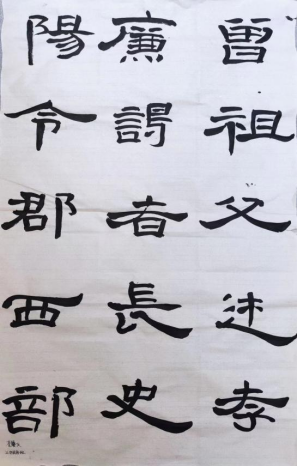 曾祖父述孝
廉謁者長史
陽令郡西部